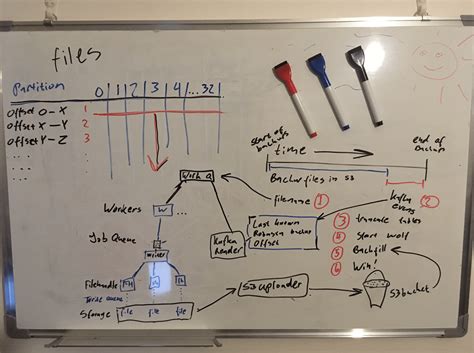 files
Partition 0 1 2 3 4 ... 32
Offset 0-X 1
Offset X-Y 2
Offset Y-Z 3
start of backups
end of backups
time
Backup files in S3
filename 1
Kafka 2
Work Q
Workers W ...
Job Queue
Kafka Reader
Last known
Offset
3 truncate tables
4 Start
5 Backfill
6 Win!
Storage file file file
S3 uploader
S3 bucket